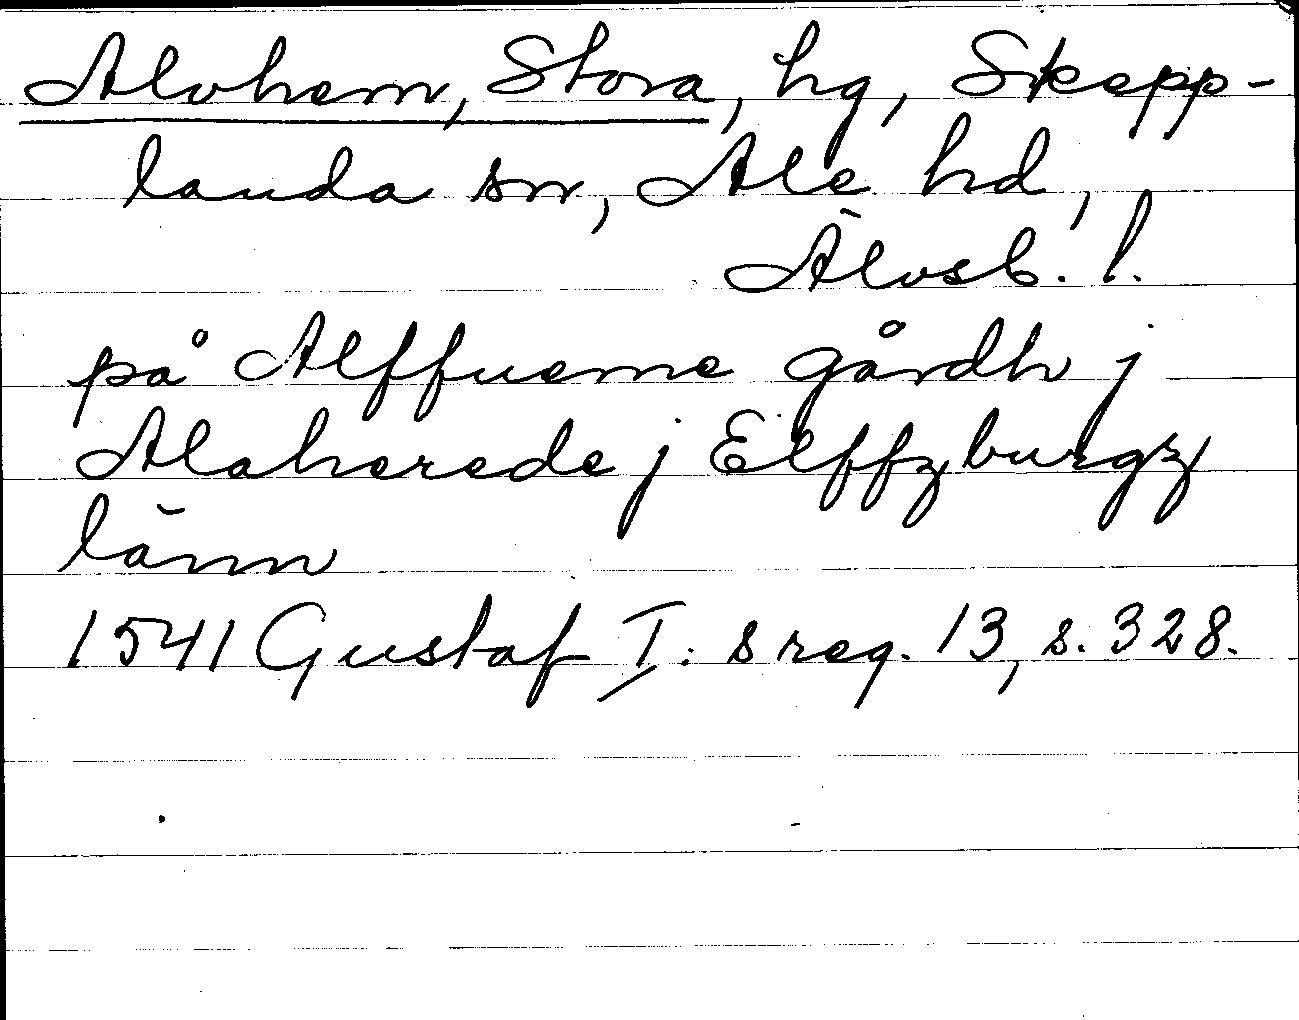 Alvhem, Stora, hg, Skepp-
landa sn, Ale hd,
Älvsb. l.
på Alffueme gårdh j
Alaherede j Elffzburgz
länn
1541 Gustaf I: s reg. 13, s. 328.